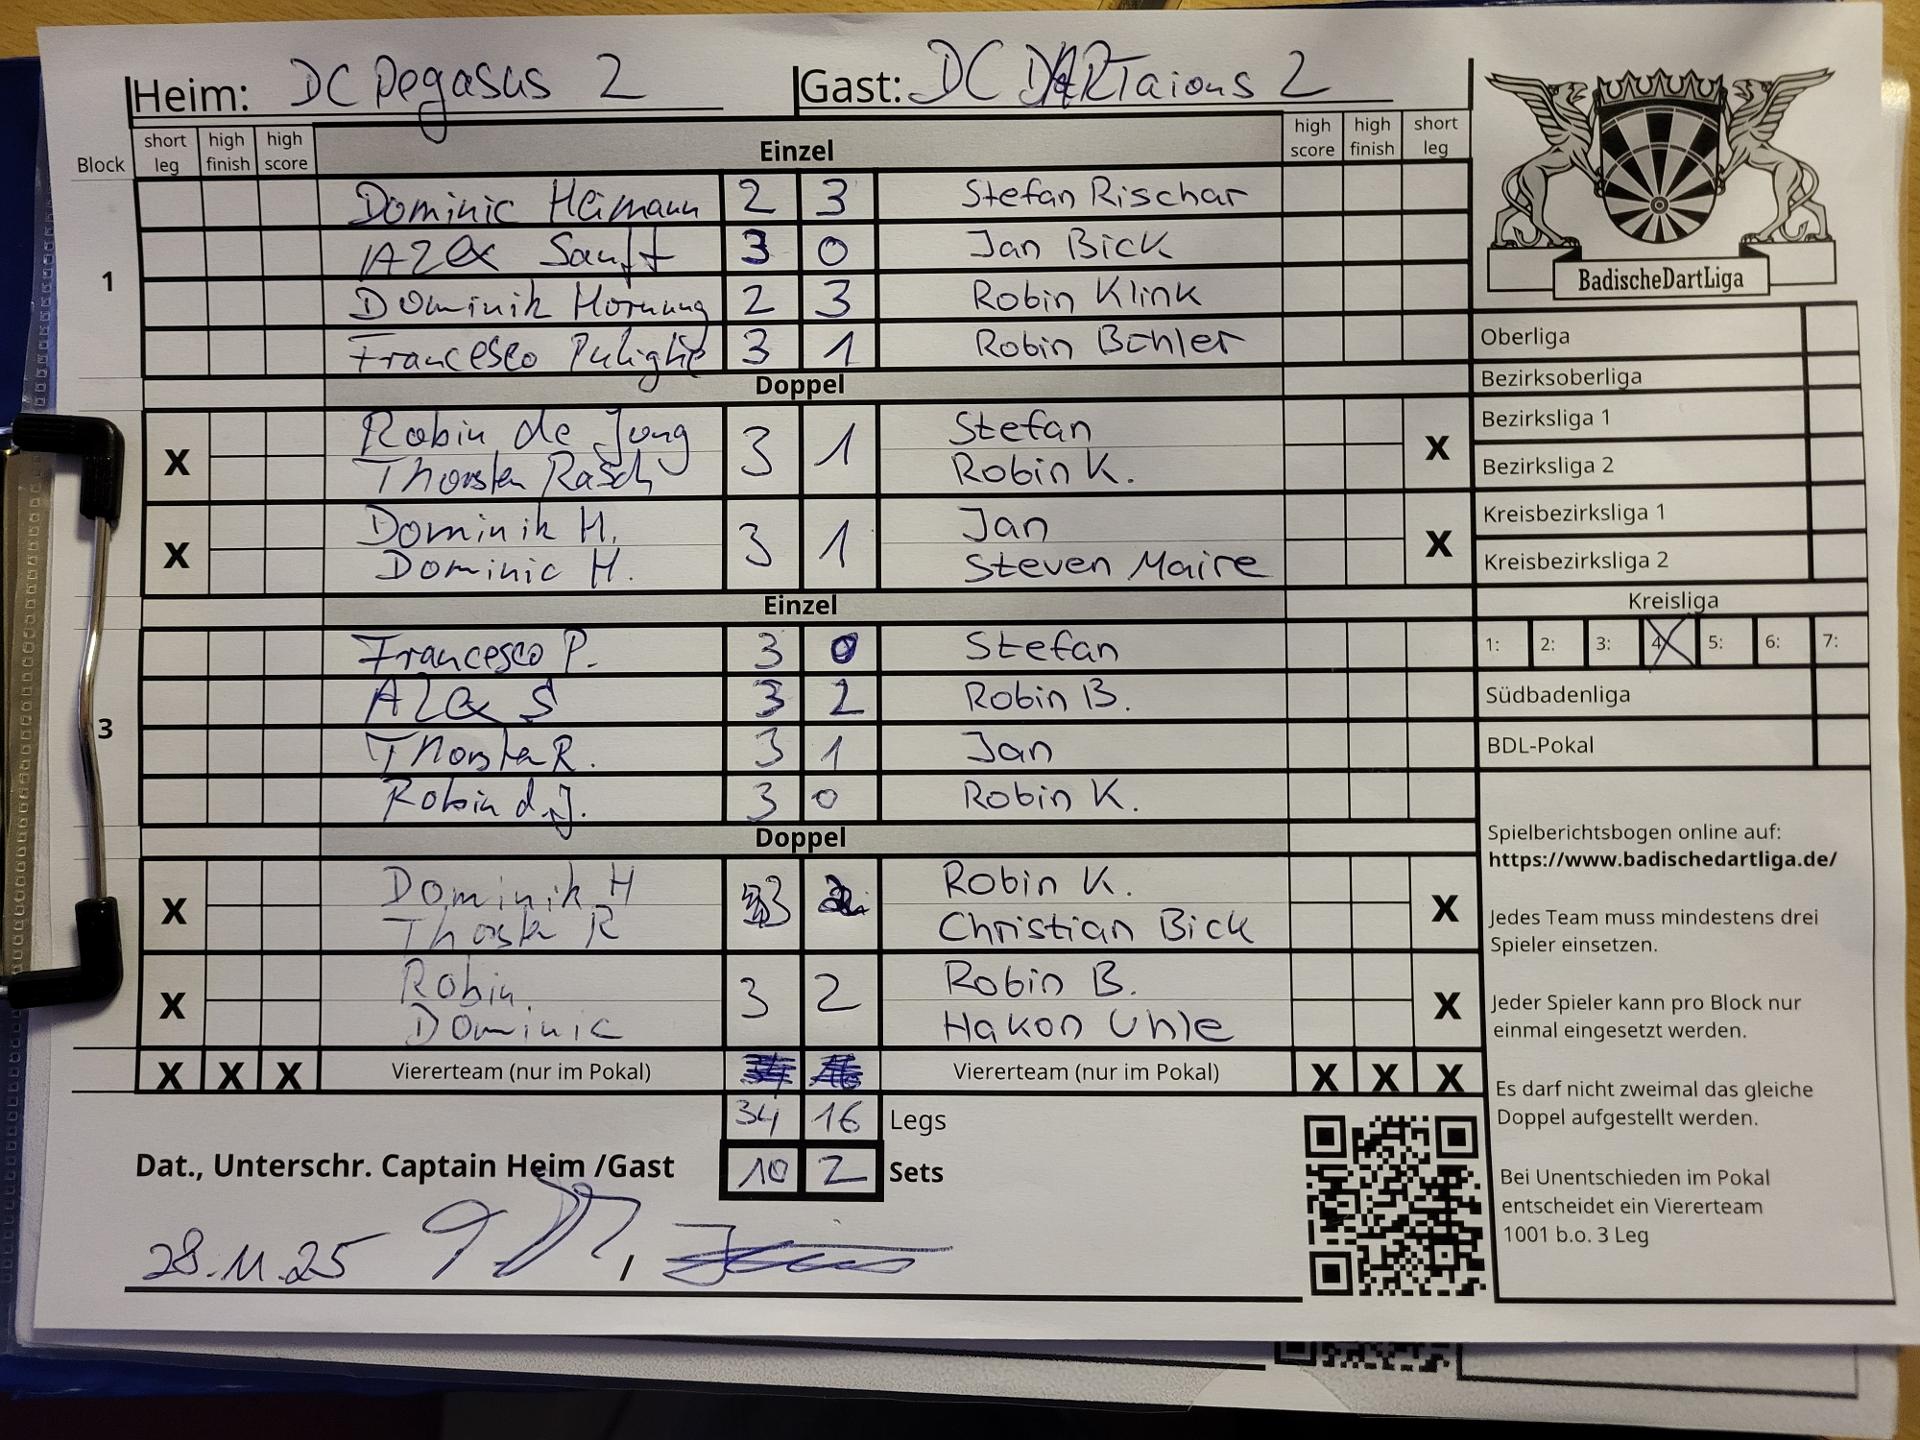 Heim: DC Pegasus 2 Gast: DC DARTaions 2
Block short leg high finish high score Einzel high score high finish short leg
Dominic Heimann 2 3 Stefan Rischar
Alex Sanft 3 0 Jan Bick
1
Dominik Hornung 2 3 Robin Klink
Francesco 3 1 Robin Böhler
Doppel
Robin de Jong Stefan
X 3 1 X
Thorsten Rasch Robin K.
Dominik H. Jan
X 3 1 X
Dominic H. Steven Maire
Einzel
Francesco P. 3 0 Stefan
Alex S 3 2 Robin B.
3
Thorsten R. 3 1 Jan
Robin d.J. 3 0 Robin K.
Doppel
Dominik H Robin K.
X 3 X
Thorsten R Christian Bick
Robin Robin B.
X 3 2 X
Dominic Hakon Uhle
X X X Viererteam (nur im Pokal) Viererteam (nur im Pokal) X X X
34 16 Legs
Dat., Unterschr. Captain Heim /Gast 10 2 Sets
28.11.25
BadischeDartLiga
Oberliga
Bezirksoberliga
Bezirksliga 1
Bezirksliga 2
Kreisbezirksliga 1
Kreisbezirksliga 2
Kreisliga
1: 2: 3: 4 X 5: 6: 7:
Südbadenliga
BDL-Pokal
Spielberichtsbogen online auf:
https://www.badischedartliga.de/
Jedes Team muss mindestens drei
Spieler einsetzen.
Jeder Spieler kann pro Block nur
einmal eingesetzt werden.
Es darf nicht zweimal das gleiche
Doppel aufgestellt werden.
Bei Unentschieden im Pokal
entscheidet ein Viererteam
1001 b.o. 3 Leg